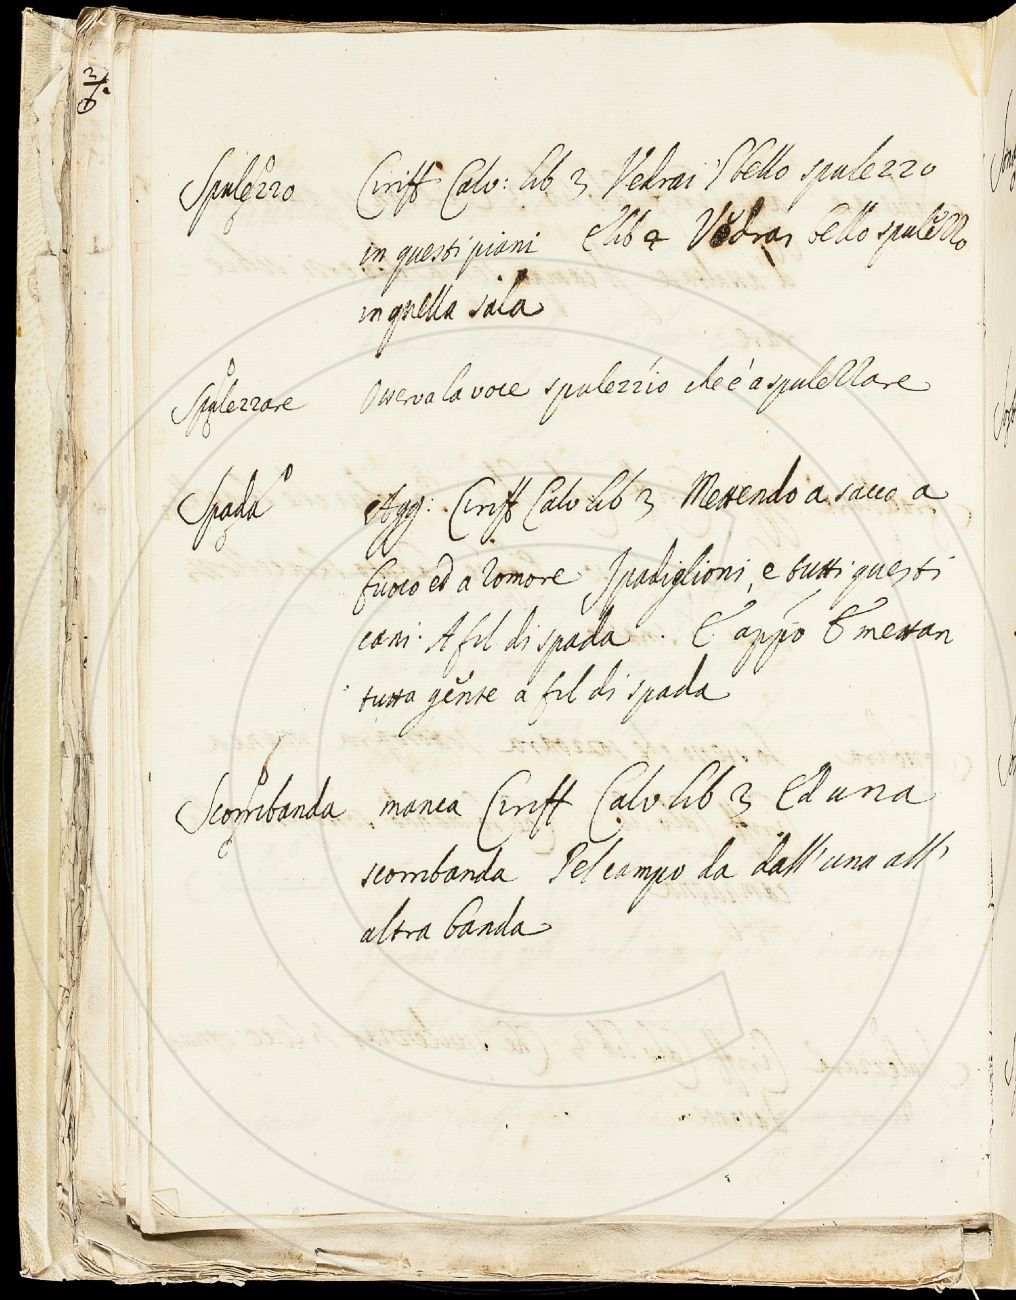 Spulezzo Ciriff Calv: lib 3 Vedrai 'l bello spulezzo
in questi piani E lib 4 Vedrai bello spulezzo
in quella sala
Spulezzare Osserva la voce spulezzio che è a spulezzare
Spada Agg: Ciriff Calv lib 3 Mettendo a sacco a
fuoco ed a romore I padiglioni, e tutti questi
cani. A fil di spada. E app.o E mettan
tutta gente a fil di spada
Scombanda manca Ciriff Calv lib 3 Ed una
scombanda Pel campo da dall' una all'
altra banda